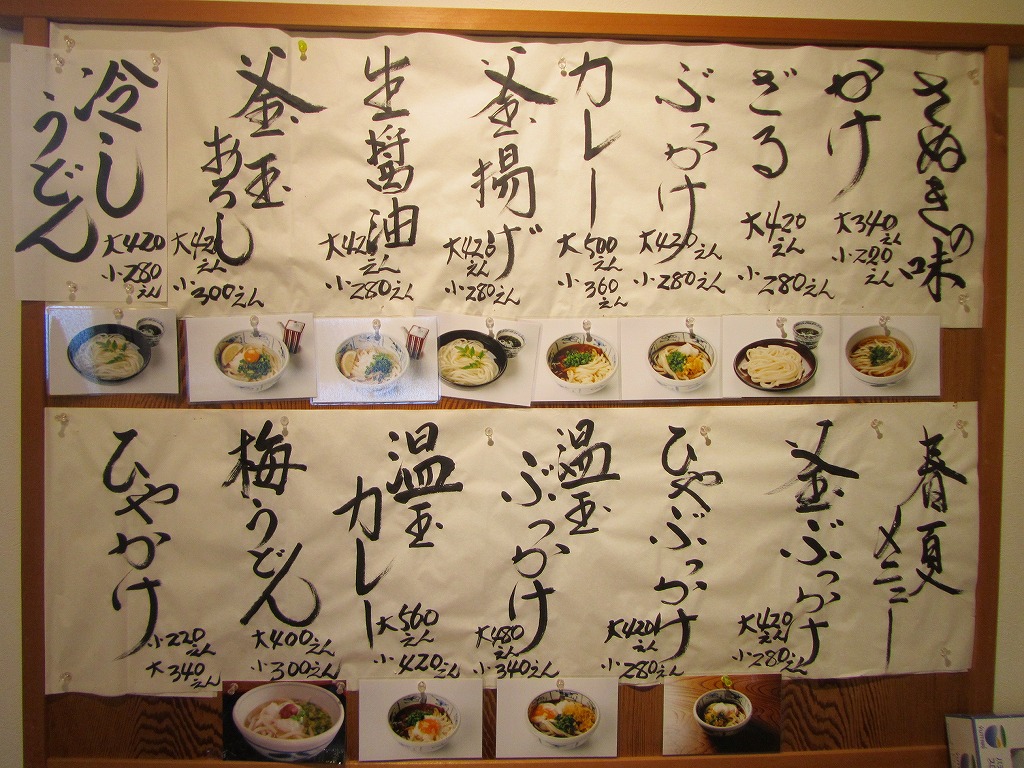 さぬきの味
かけ
大340えん
小220えん
ざる
大420えん
小280えん
ぶっかけ
大420えん
小280えん
カレー
大500えん
小360えん
釜揚げ
大420えん
小280えん
生醤油
大420えん
小280えん
釜玉
おろし
大420えん
小300えん
冷し
うどん
大420
小280えん
春夏
メニュー
釜ぶっかけ
大420えん
小280えん
ひやぶっかけ
大420
小280えん
温玉
ぶっかけ
大480
小340えん
温玉
カレー
大560えん
小420えん
梅うどん
大400えん
小300えん
ひやかけ
小220えん
大340えん